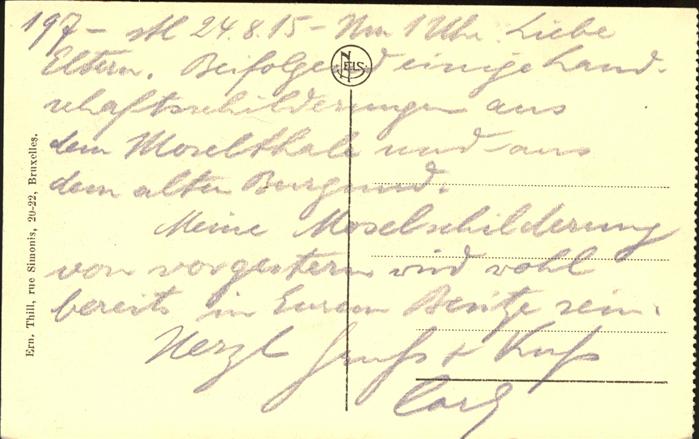 197- stl 24.8.15 - Nm 1 Uhr Liebe
Eltern. Beifolgend einige Land-
schaftsschilderungen aus
dem Moselthale und aus
dem alten Burgund.
Meine Moselschilderung
von vorgestern wird wohl
bereits in Eurem Besitze sein.
Herzl Gruß & Kuß
Carl
NELS
Ern. Thill, rue Simonis, 20-22, Bruxelles.